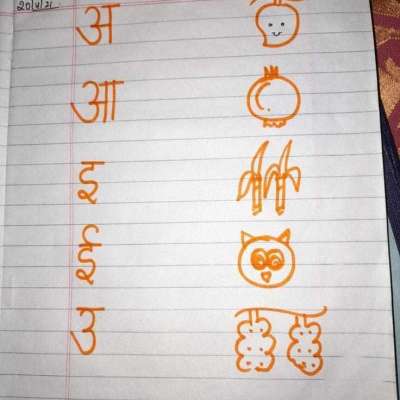 20/4/21
अ
आ
इ
ई
उ